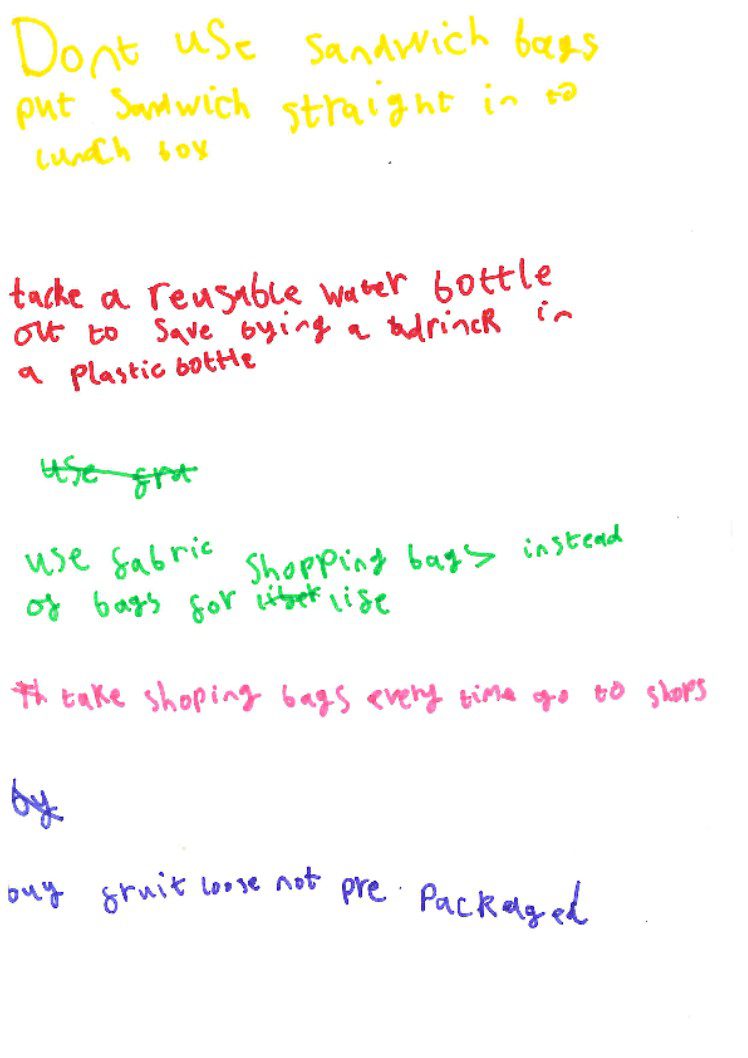 Dont use sandwich bags
put sandwich straight in to
lunch box
tacke a reusable water bottle
out to save bying a drinck in
a plastic bottle
use fabric shopping bags instead
of bags for life
take shoping bags every time go to shops
by
buy fruit loose not pre packaged